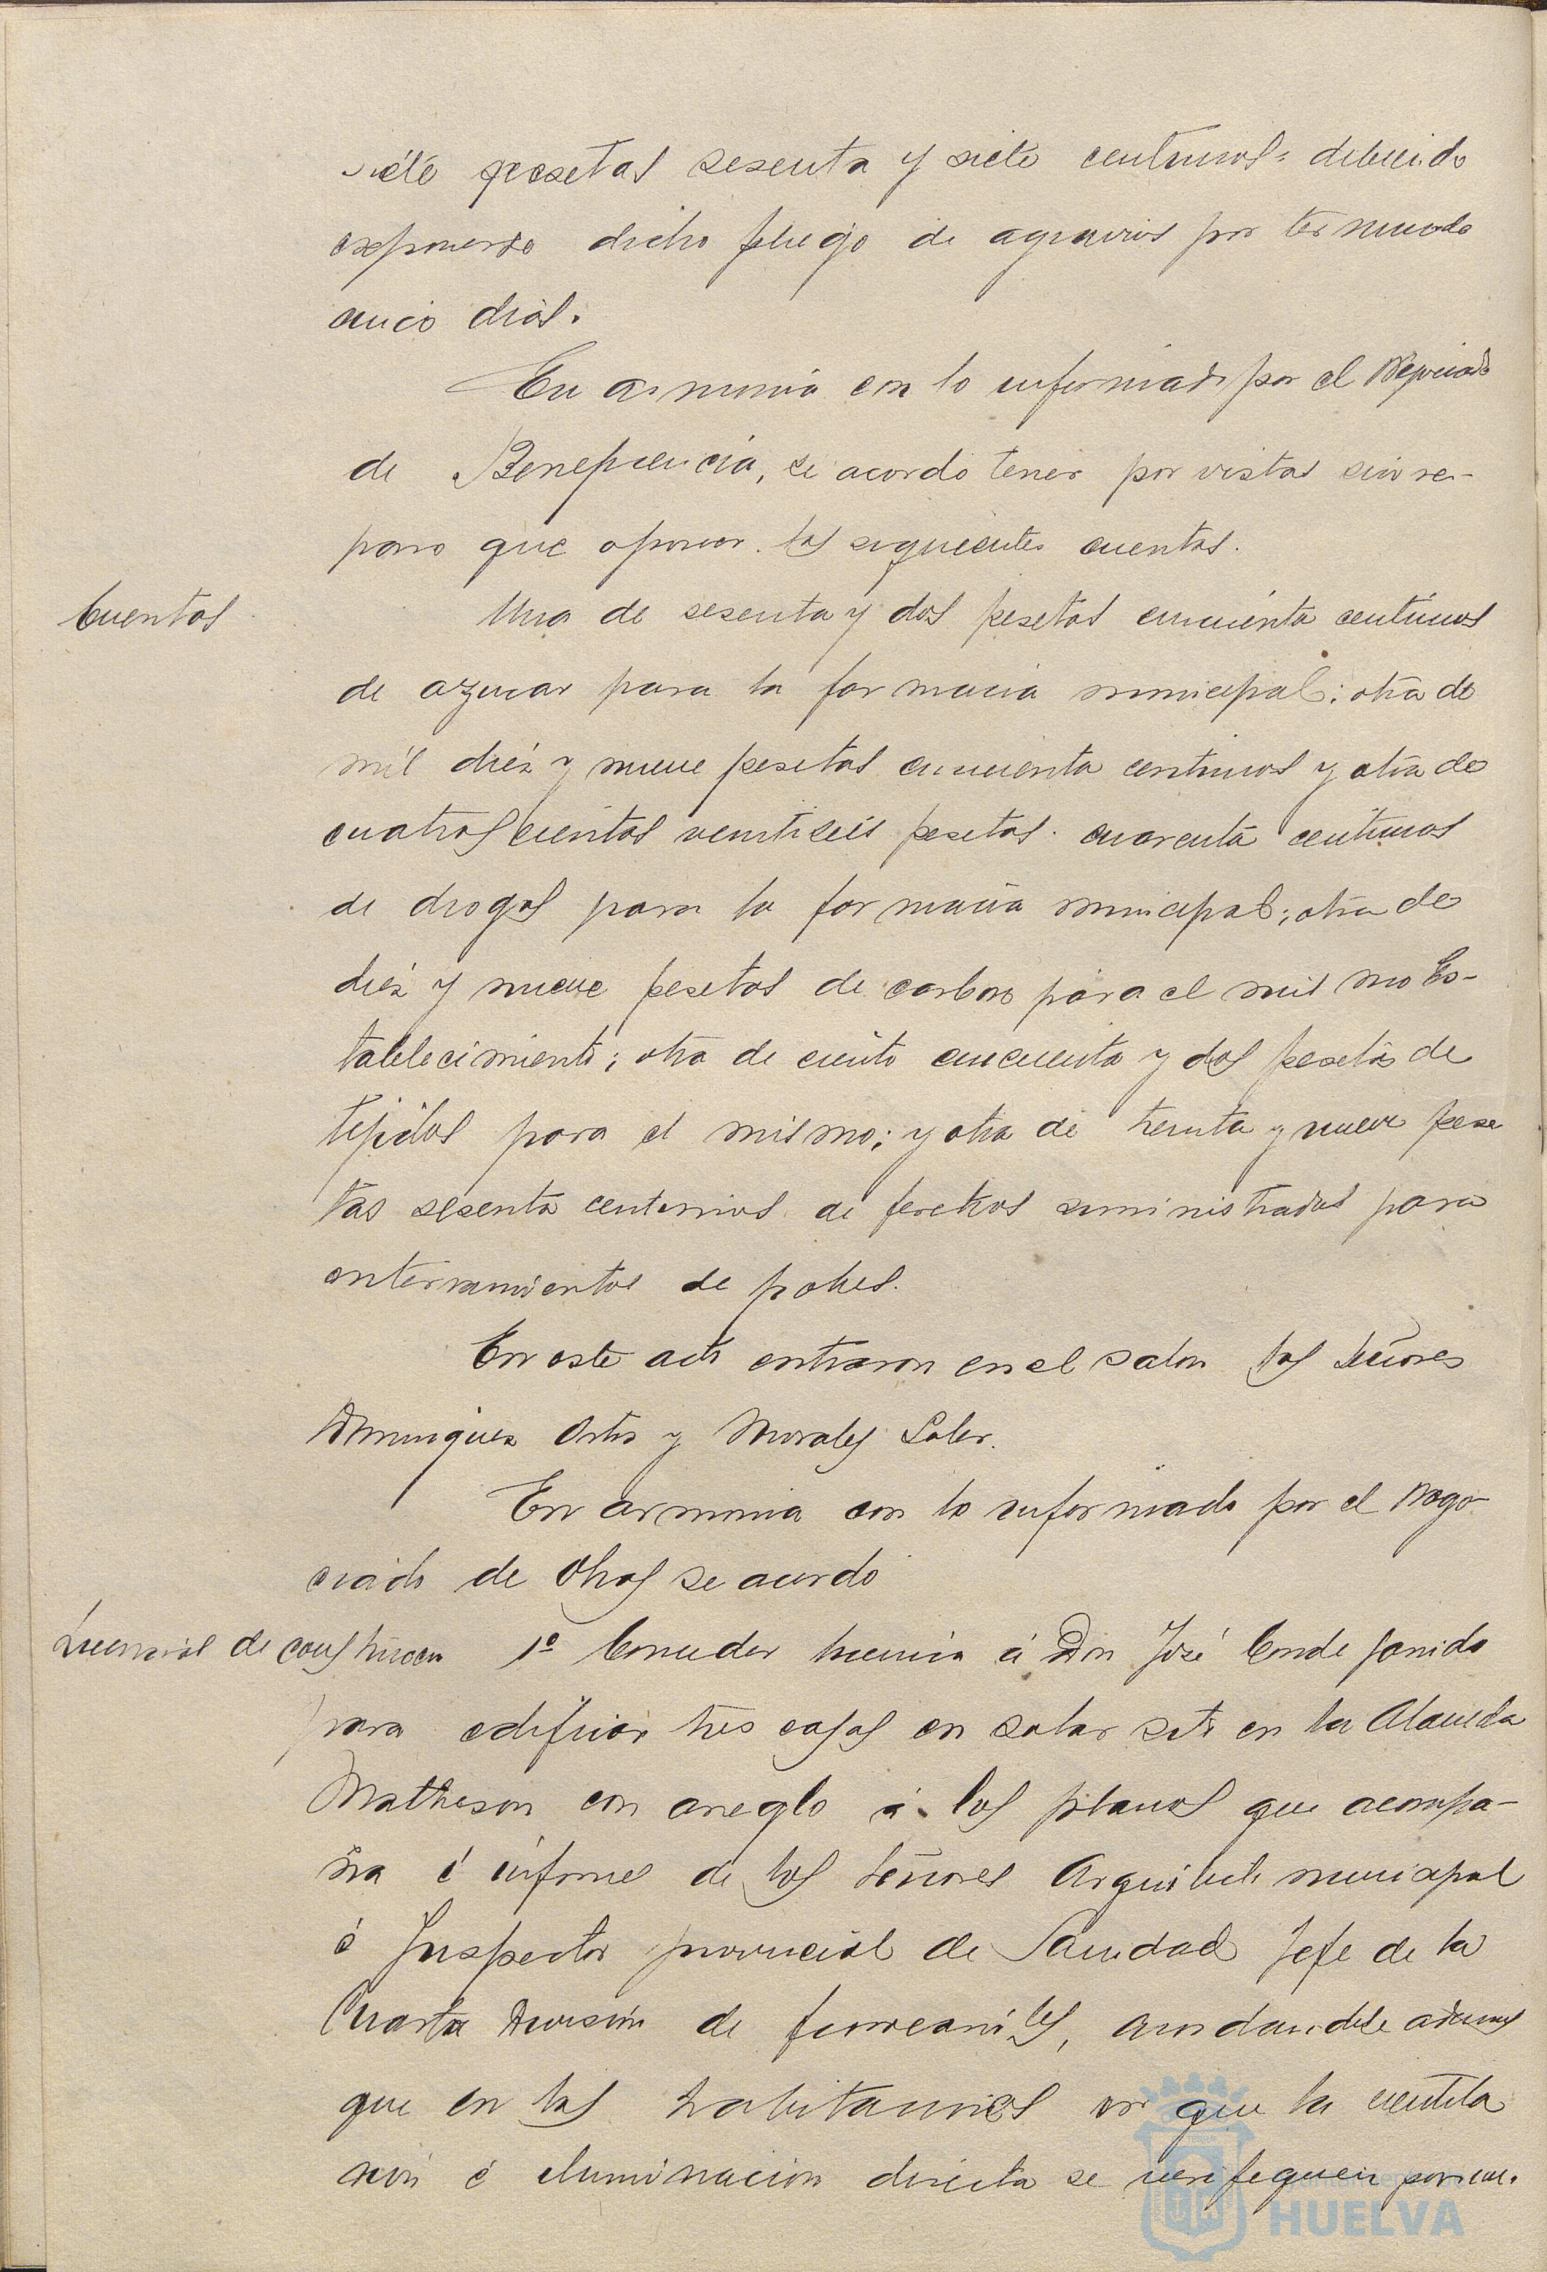 siete pesetas sesenta y siete centimos: debiendo
exponerse dicho pliego de agravios por termino de
cinco dias.
En armonia con lo informado por el Negociado
de Beneficencia, se acordó tener por vistas sin re-
paro que oponer las siguientes cuentas.
Cuentas
Una de sesenta y dos pesetas cincuenta centimos
de azucar para la farmacia municipal; otra de
mil diez y nueve pesetas cincuenta centimos y otra de
cuatroscientas veintiseis pesetas cuarenta centimos
de drogas para la farmacia municipal; otra de
diez y nueve pesetas de carbon para el mismo Es-
tablecimiento; otra de ciento cincuenta y dos pesetas de
tejidos para el mismo; y otra de treinta y nueve pese
tas sesenta centimos de feretros suministrados para
enterramientos de pobres.
En este acto entraron en el salon los Señores
Dominguez Ortiz y Morales Soler.
En armonia con lo informado por el Nego-
ciado de Obras se acordó
Licencias de construccion
1º Conceder licencia á Don José Conde Garrido
para edificar tres casas en solar sito en la Alameda
Matheson con arreglo á los planos que acompa-
ña é informes de los Señores Arquitecto municipal
é Inspector provincial de Sanidad Jefe de la
Cuarta Division de ferrocarriles, acordandose ademas
que en las habitaciones en que la ventila
cion é iluminacion directa se verifiquen por
HUELVA